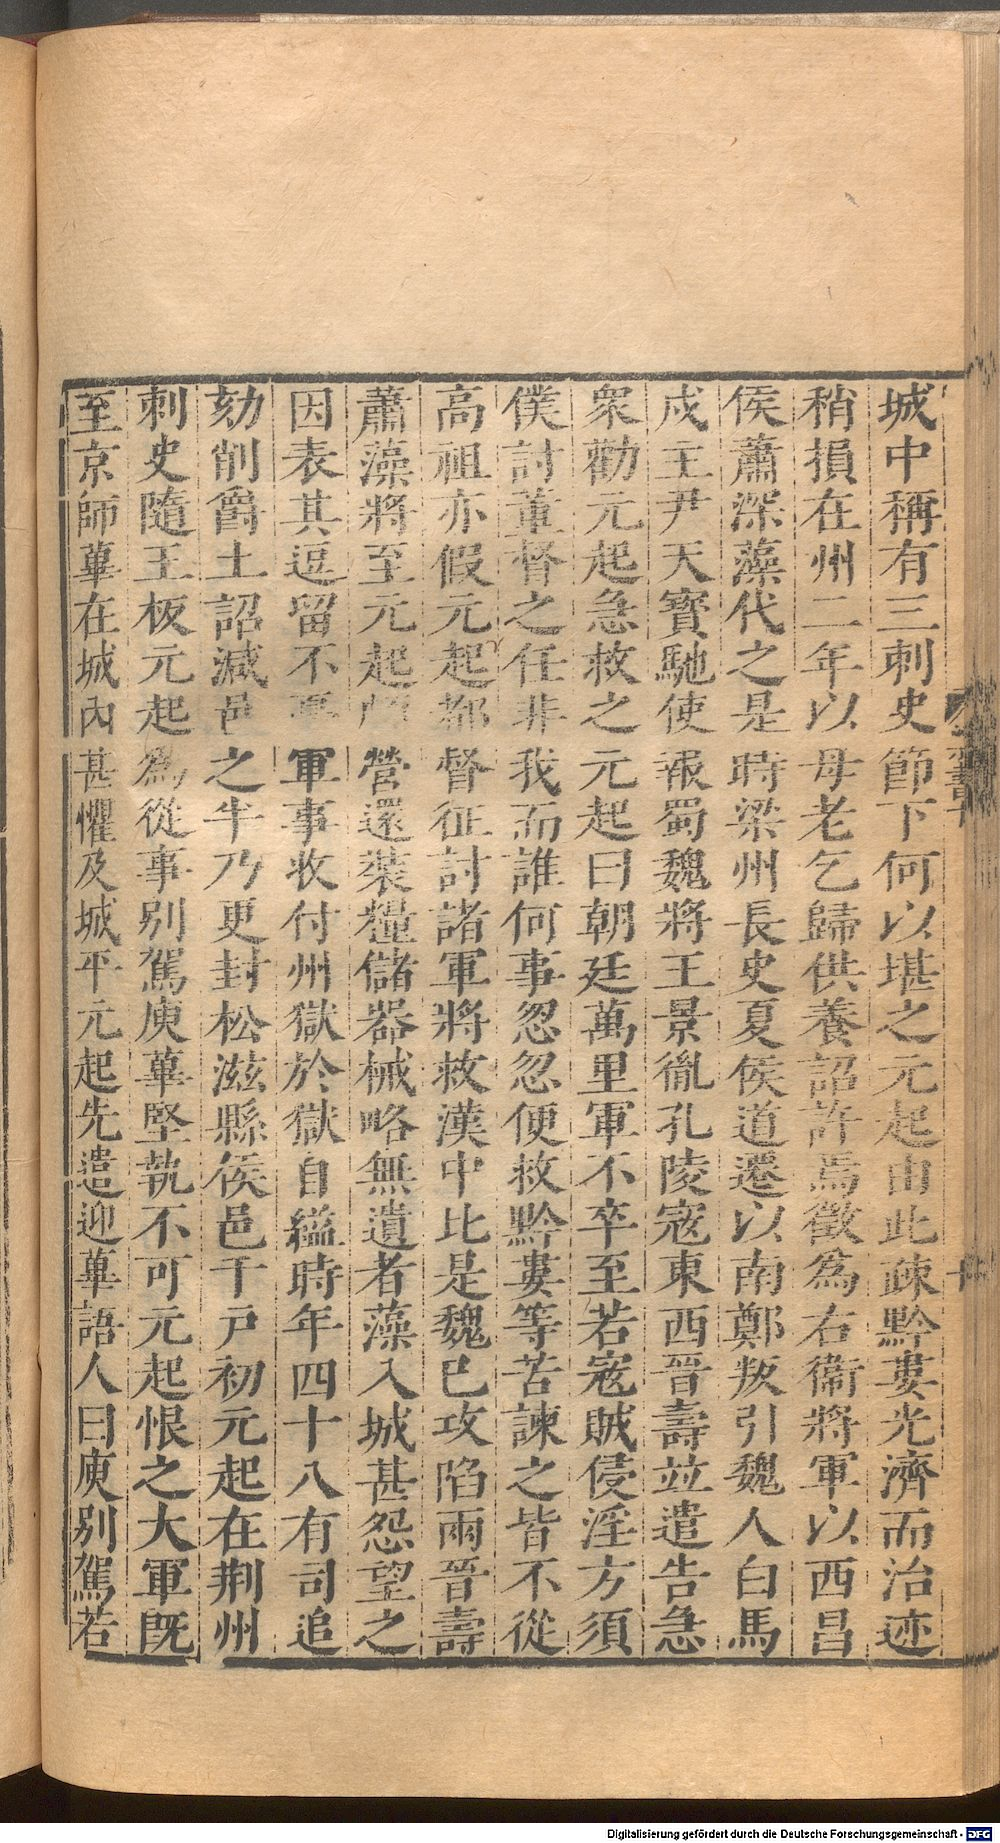 城中稱有三刺史節下何以堪之元起由此疎黔婁光濟而治迹
稍損在州二年以母老乞歸供養詔許焉徵爲右衞將軍以西昌
侯蕭深藻代之是時梁州長史夏侯道遷以南鄭叛引魏人白馬
戍主尹天寶馳使報蜀魏將王景胤孔陵寇東西晉壽竝遣告急
衆勸元起急救之元起曰朝廷萬里軍不卒至若寇賊侵淫方須
僕討董督之任非我而誰何事忽忽便救黔婁等苦諫之皆不從
高祖亦假元起都督征討諸軍將救漢中比是魏已攻陷兩晉壽
蕭藻將至元起 營還裝糧儲器械略無遺者藻入城甚怨望之
因表其逗留不 軍事收付州獄於獄自縊時年四十八有司追
劾削爵土詔減邑之半乃更封松滋縣侯邑千戶初元起在荆州
刺史隨王板元起爲從事别駕庾蓽堅執不可元起恨之大軍旣
至京師蓽在城内甚懼及城平元起先遣迎蓽語人曰庾别駕若
書十
十
Digitalisierung gefördert durch die Deutsche Forschungsgemeinschaft - DFG